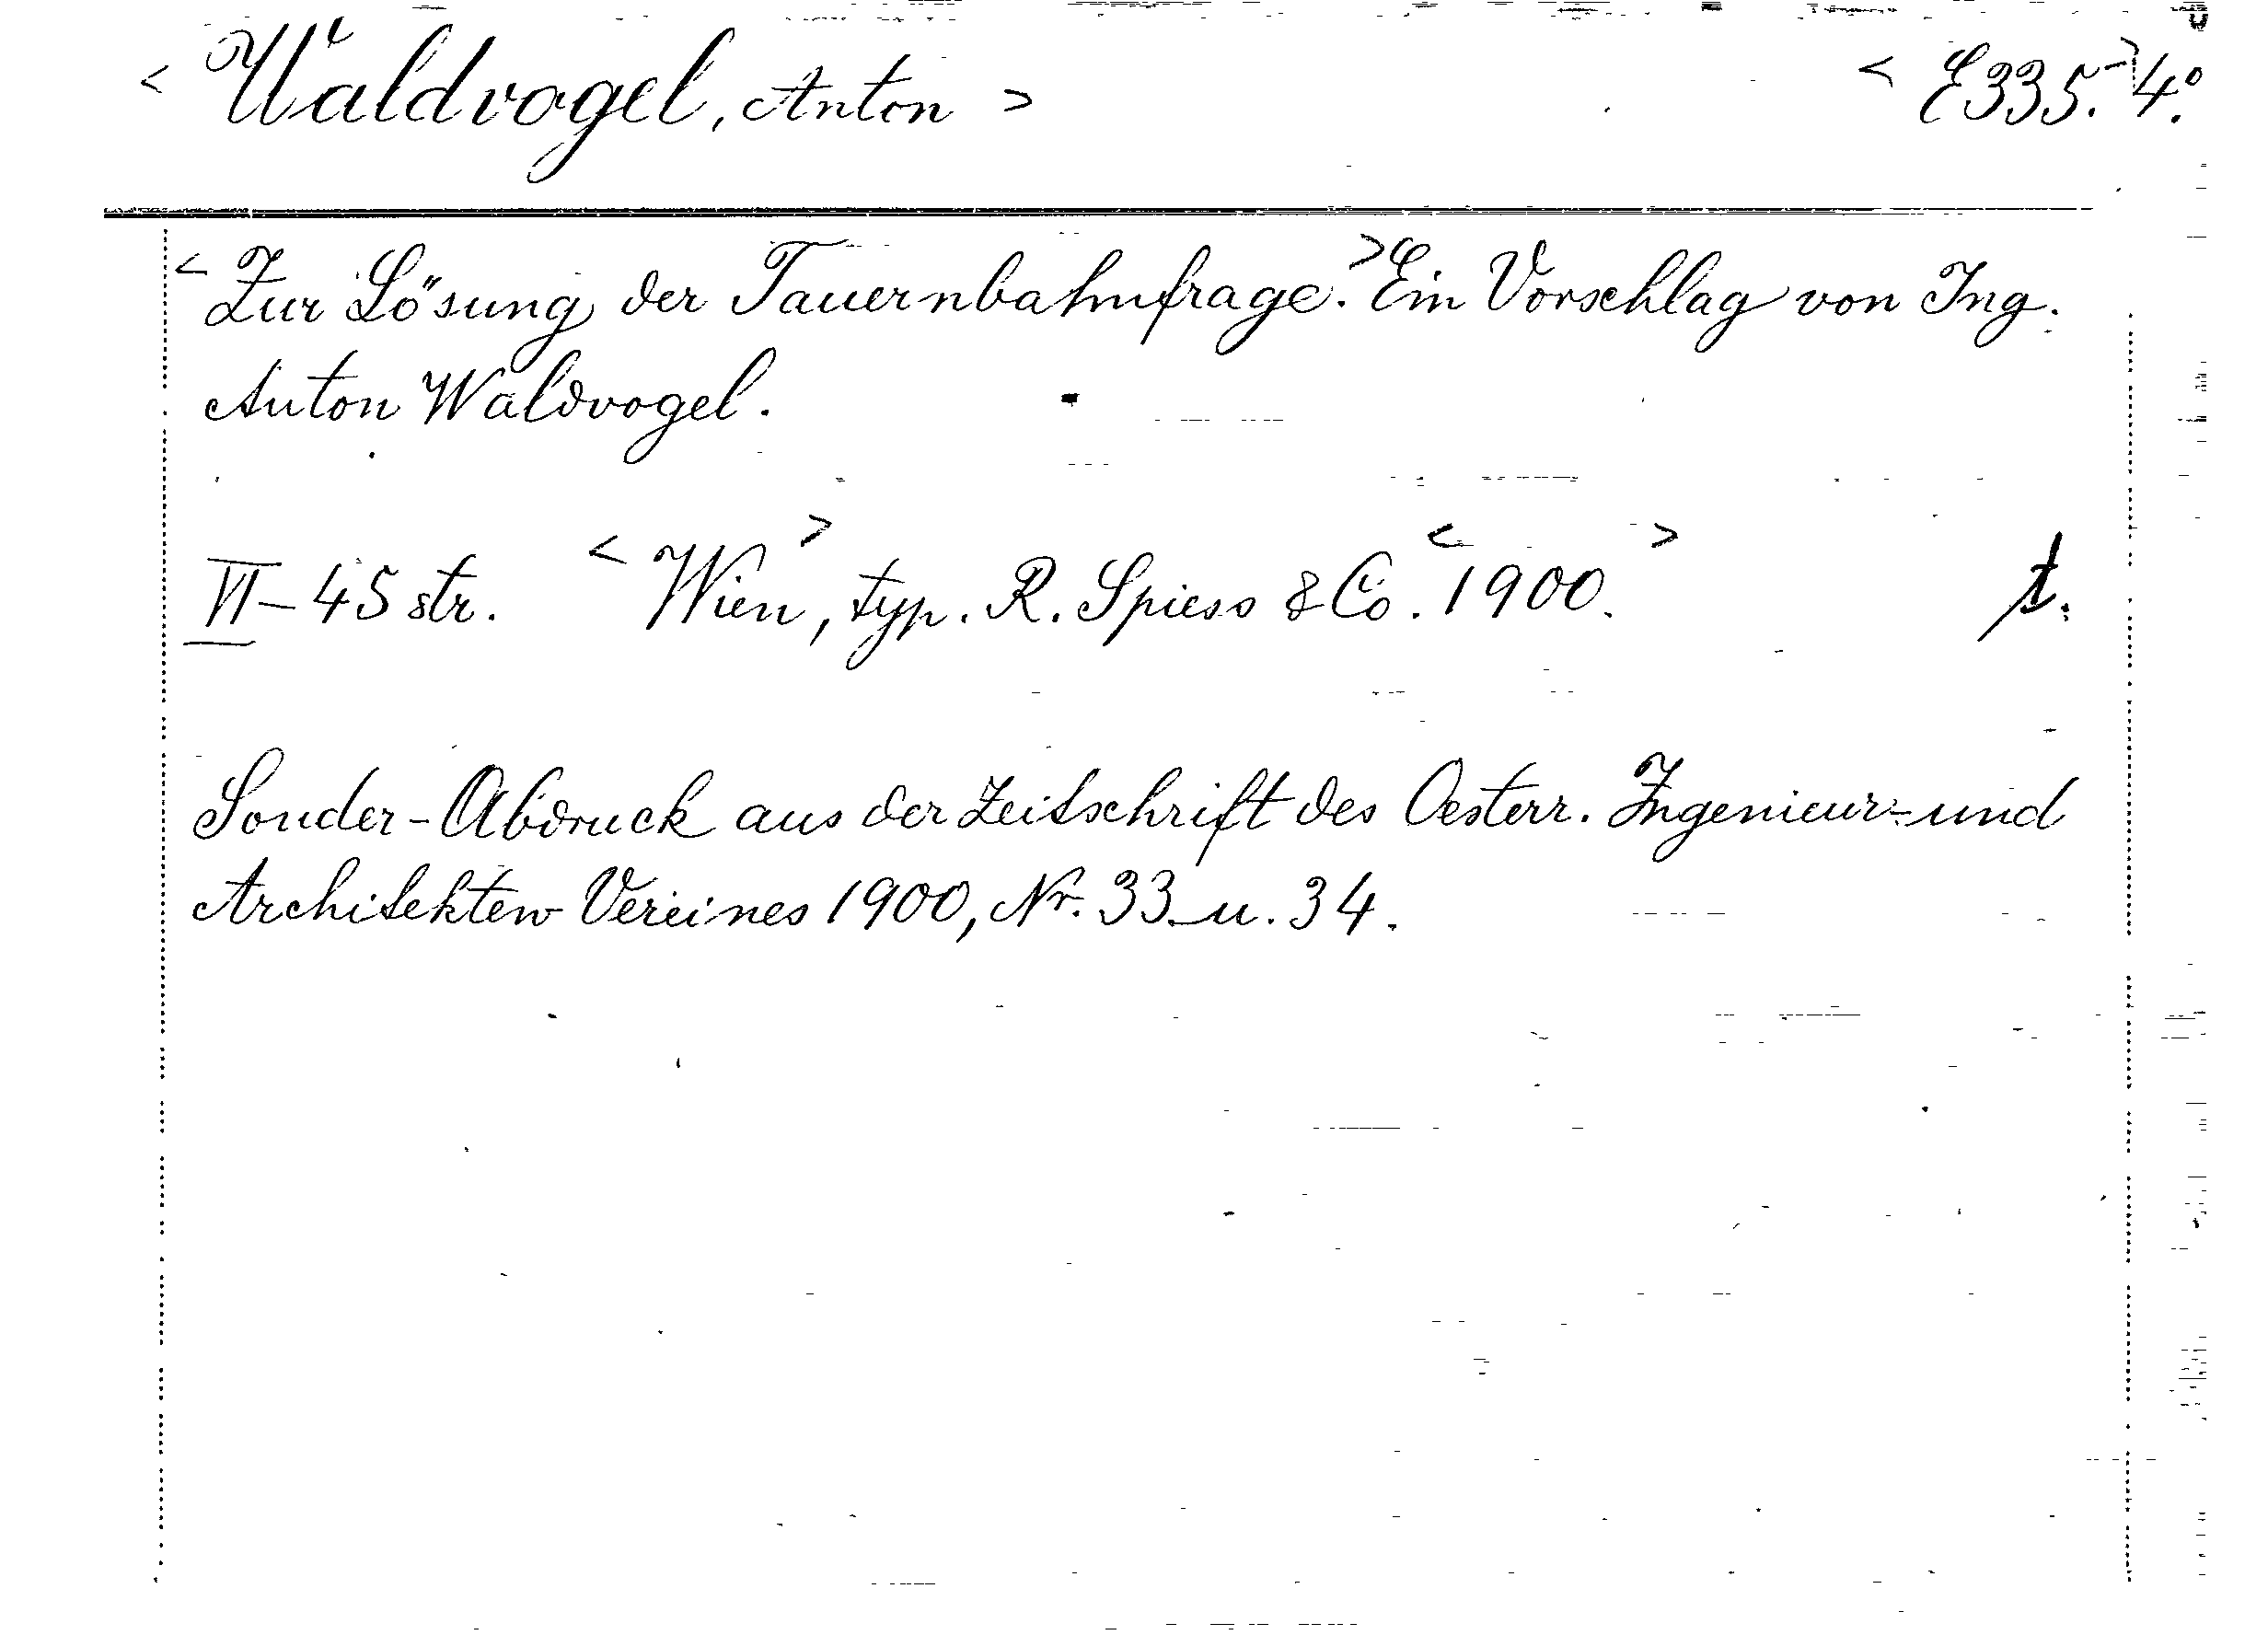 < Waldvogel, Anton > < E335.> 4º.
< Zur Lösung der Tauernbahnfrage.> Ein Vorschlag von Ing.
Anton Waldvogel.
VI-45 str. < Wien >, typ. R. Spiess & Co. < 1900. > t.
Sonder-Abdruck aus der Zeitschrift des Oesterr. Ingenieur- und
Architekten Vereines 1900, Nr. 33 u. 34.